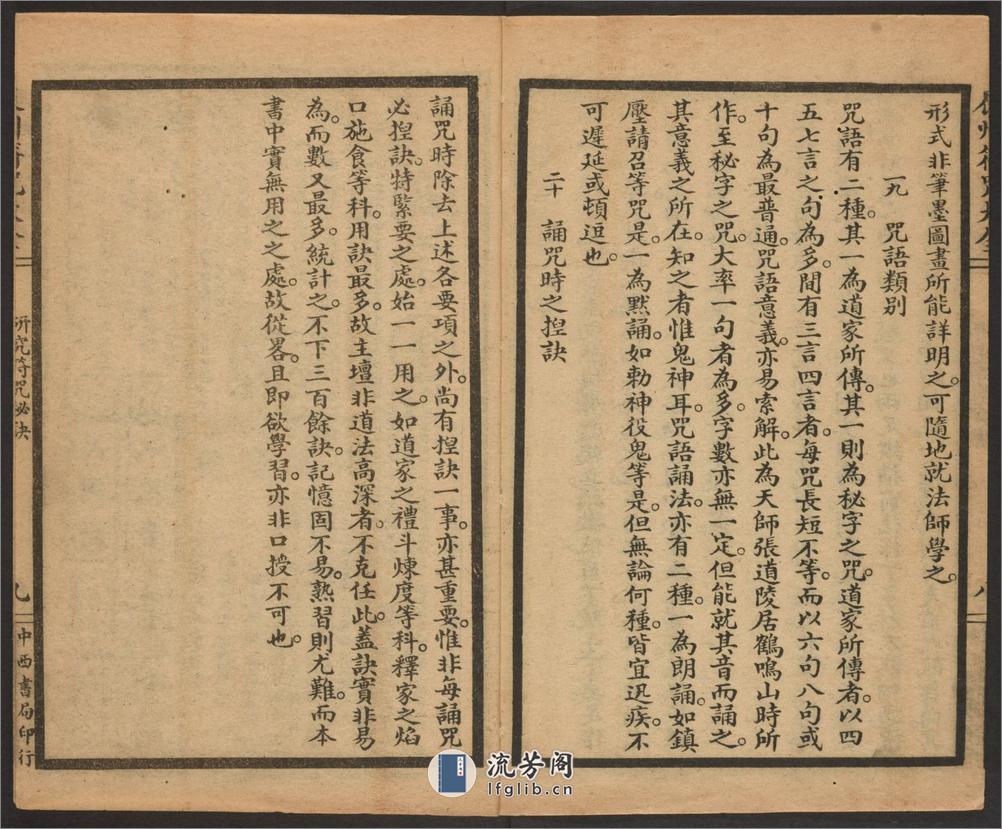 形式非筆墨圖畫所能詳明之。可隨地就法師學之。
一九 咒語類别
咒語有二種。其一為道家所傳。其一則為秘字之咒。道家所傳者。以四
五七言之句為多。間有三言四言者。每咒長短不等。而以六句八句或
十句為最普通。咒語意義。亦易索解。此為天師張道陵居鶴鳴山時所
作。至秘字之咒。大率一句者為多。字數亦無一定。但能就其音而誦之。
其意義之所在。知之者惟鬼神耳。咒語誦法。亦有二種。一為朗誦。如鎮
壓請召等咒是。一為默誦。如勅神役鬼等是。但無論何種。皆宜迅疾。不
可遲延或頓逗也。
二十 誦咒時之揑訣
誦咒時除去上述各要項之外。尚有揑訣一事。亦甚重要。惟非每誦咒
必揑訣。特緊要之處。始一一用之。如道家之禮斗煉度等科。釋家之焰
口施食等科。用訣最多。故主壇非道法高深者。不克任此。蓋訣實非易
為。而數又最多。統計之。不下三百餘訣。記憶固不易。熟習則尤難。而本
書中實無用之之處。故從畧。且即欲學習。亦非口授不可也。
研究符咒秘决
九
中西書局印行
八
流芳阁
lfglib.cn